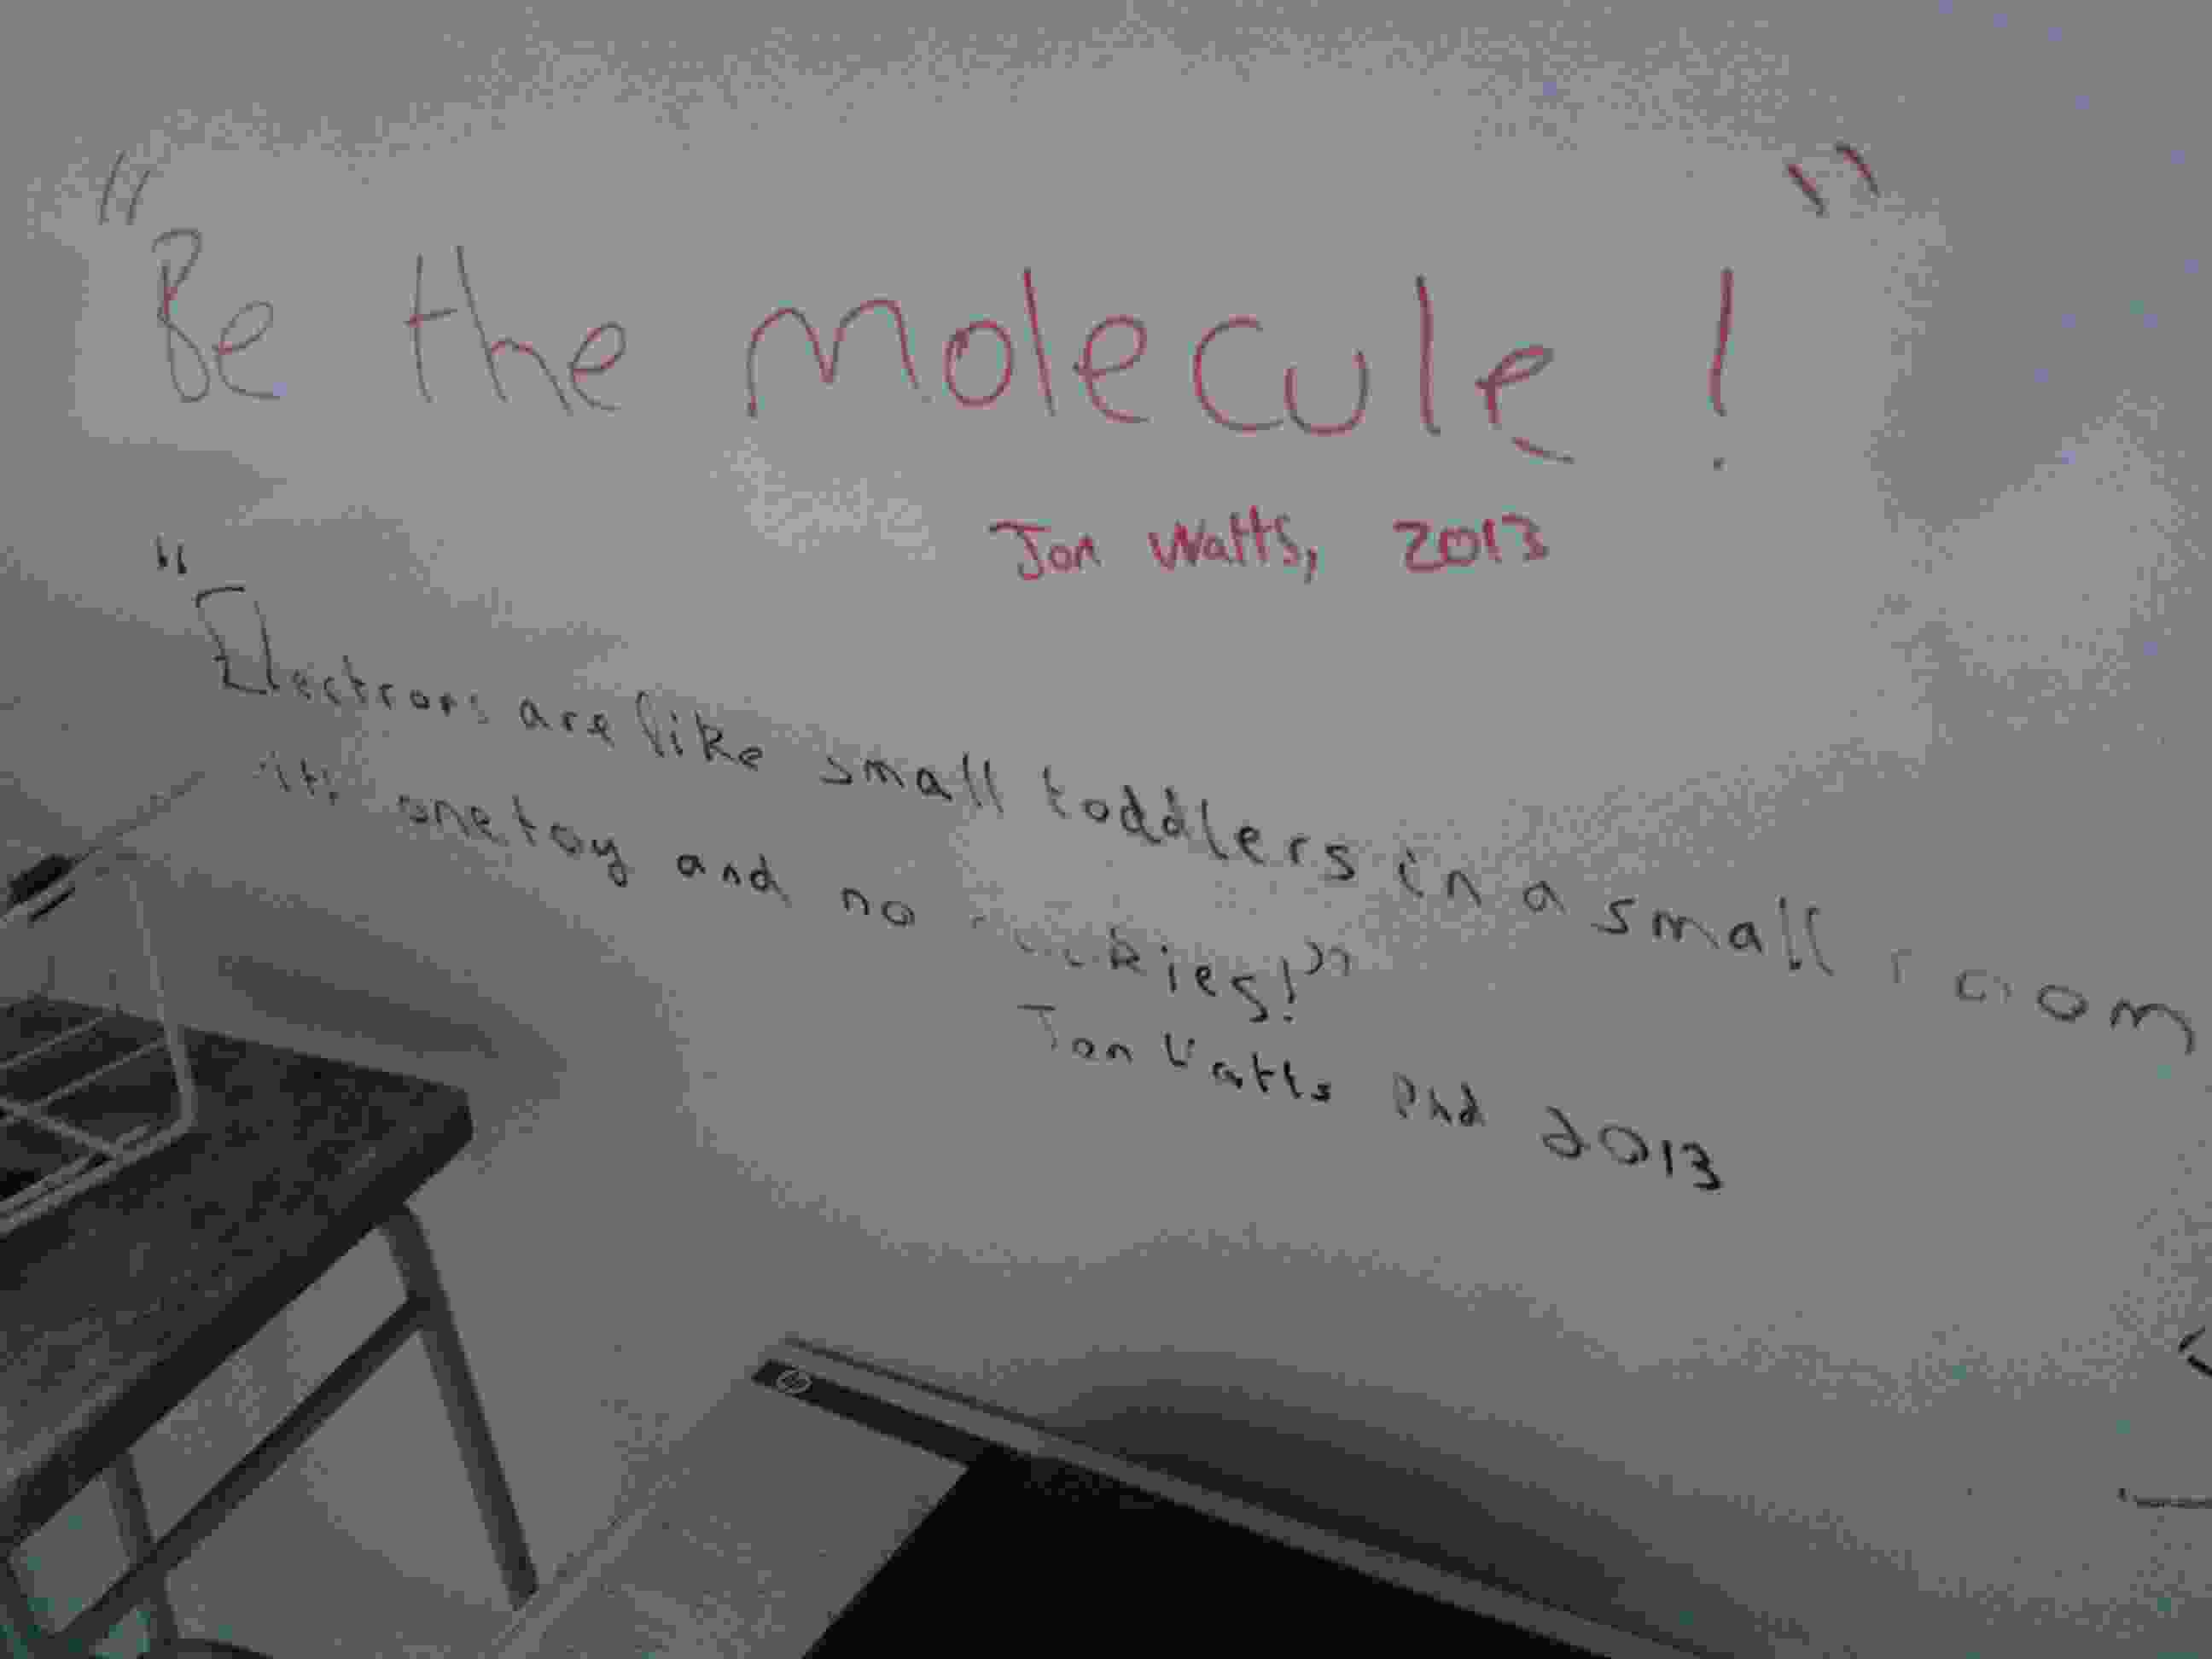 "Be the molecule!"
Jon Watts, 2013
"Electrons are like small toddlers in a small room
one toy and no
Jon Watts 2nd 2013
hp